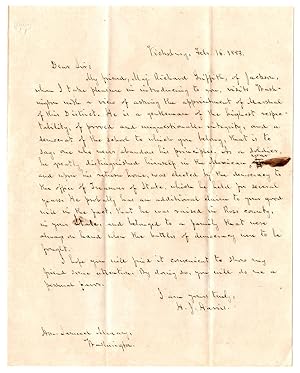 Vicksburg, Feb. 16. 1853.
Dear Sir;
My friend, Maj. Richard Griffith, of Jackson,
whom I take pleasure in introducing to you, visits Wash-
ington with a view of asking the appointment of Marshal
of this District. He is a gentleman of the highest respec-
tability, of proved and unquestionable integrity, and a
democrat of the school to which you belong, that is to
say, one who never abandons his principles. As a soldier,
he greatly distinguished himself in the Mexican war,
and upon his return home, was elected by the democracy to
the office of Treasurer of State, which he held for several
years. He probably has an additional claim to your good
will in the fact, that he was raised in
in your State, and belonged to a family that were
always on hand when the battles of democracy were to be
fought.
I hope you will find it convenient to show my
friend some attention. By doing so, you will do me a
personal favor.
I am yours truly,
Hon.
Washington.